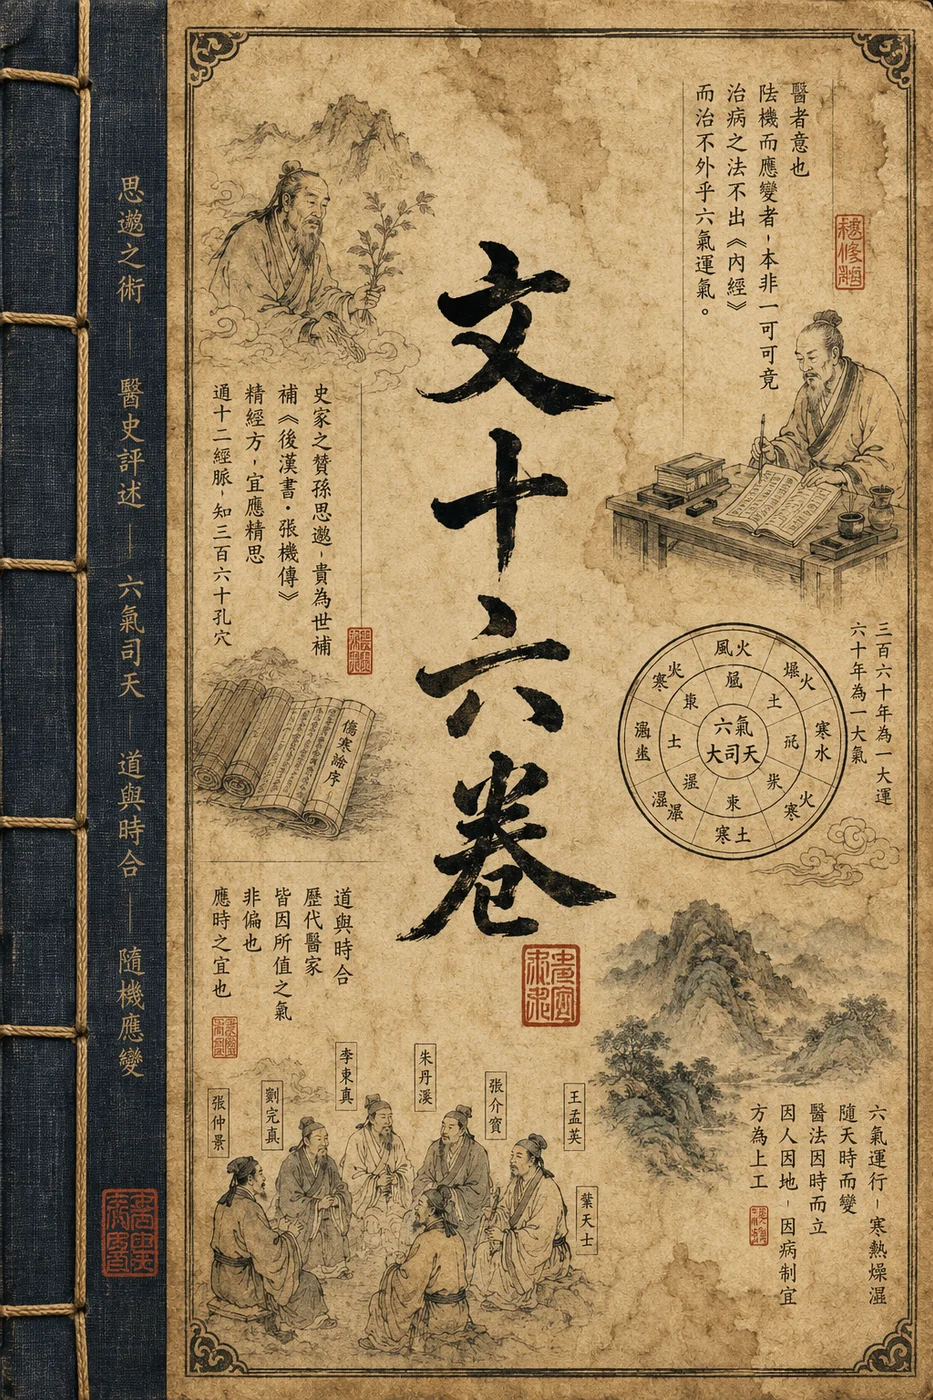 文十六卷
醫者意也
陸機而應變者，本非一可可竟
治病之法不出《內經》
而治不外乎六氣運氣。
史家之贊孫思邈，貴為世補
補《後漢書·張機傳》
精經方，宜應精思
通十二經脈，知三百六十孔穴
傷寒論序
三百六十年為一大運
六十年為一大氣
六氣
大司天
風火
燥火
寒水
火
寒
寒土
寒火
土
土
東
道與時合
歷代醫家
皆因所值之氣
非偏也
應時之宜也
張仲景
劉完真
李東真
朱丹溪
張介賓
王孟英
葉天士
六氣運行，寒熱燥濕
隨天時而變
醫法因時而立
因人因地，因病制宜
方為上工
思邈之術｜醫史評述｜六氣司天｜道與時合｜隨機應變